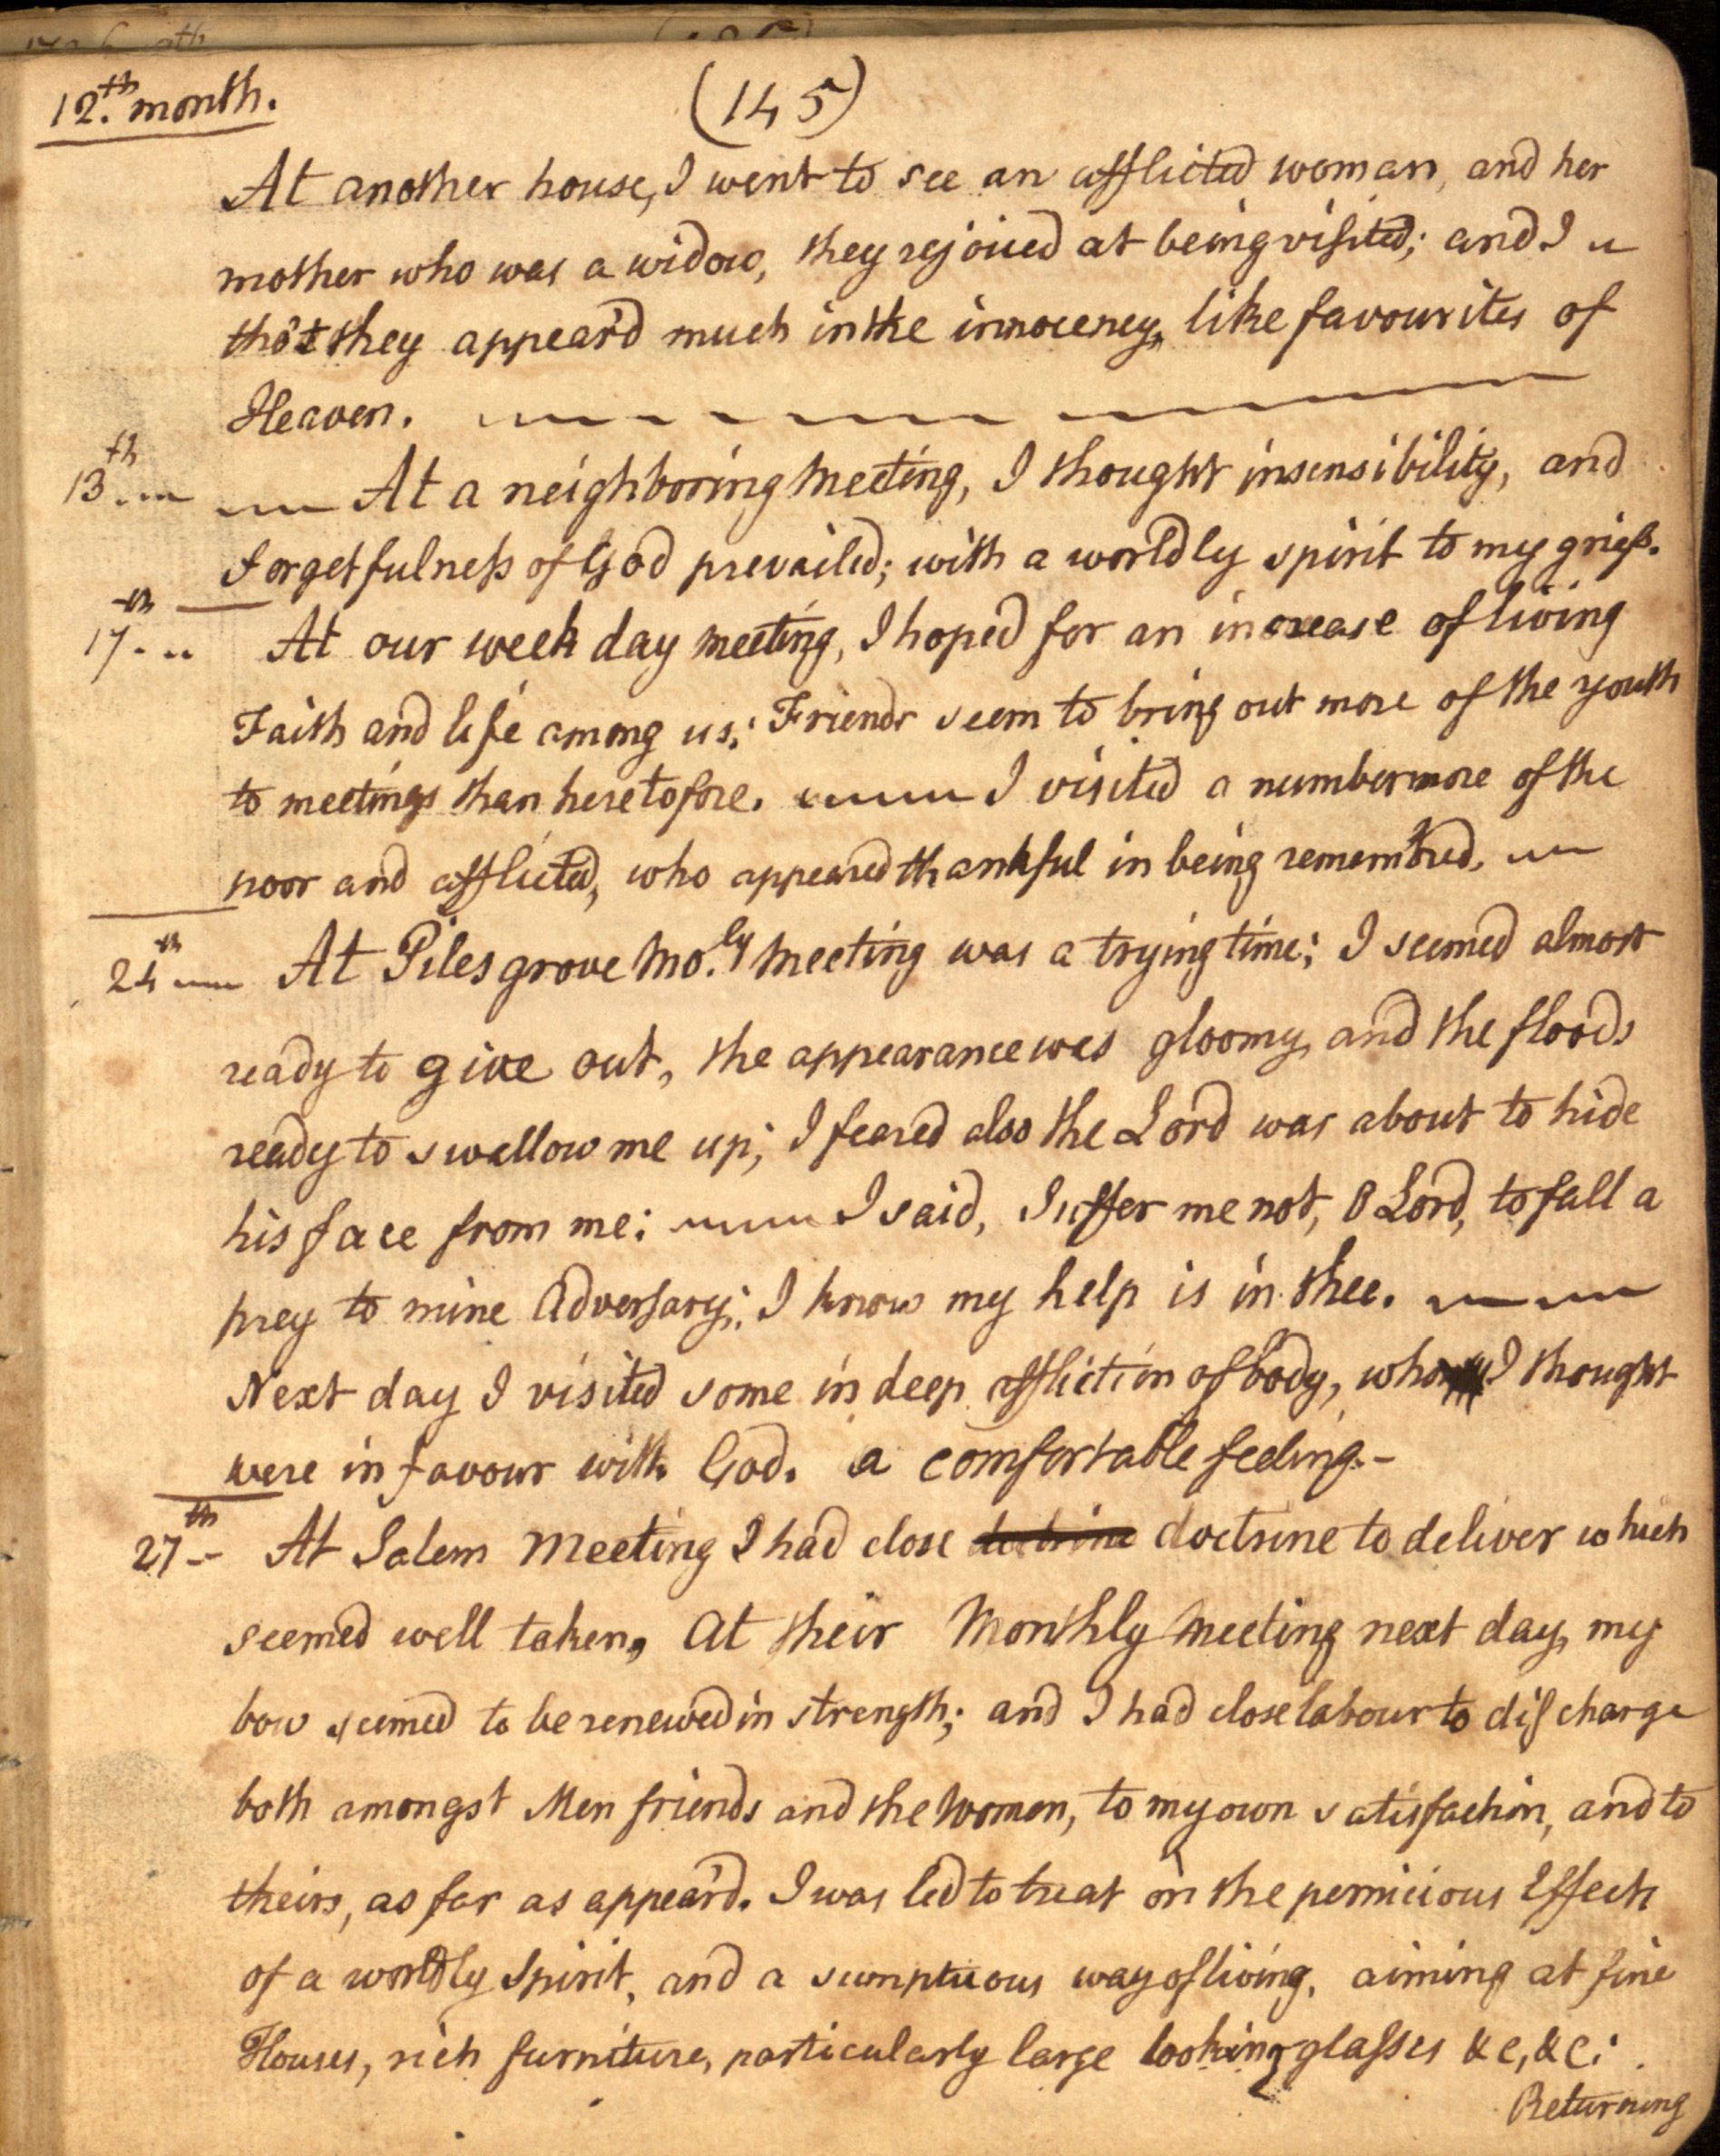 12.th month.
(145)
At another house, I went to see an afflicted woman, and her
mother who was a widow, they rejoiced at being visited; and I
tho't they appear'd much in the innocency, like favourites of
Heaven.
13th At a neighboring Meeting, I thought insensibility, and
forgetfulness of God prevailed; with a worldly spirit to my grief.
17th At our week day meeting, I hoped for an increase of living
Faith and life among us; Friends seem to bring out more of the youth
to meetings than heretofore. I visited a number more of the
poor and afflicted, who appeared thankful in being remembred.
24th At Pilesgrove Mo.ly Meeting was a trying time; I seemed almost
ready to give out, the appearance was gloomy, and the floods
ready to swallow me up; I feared also the Lord was about to hide
his face from me: I said, Suffer me not, O Lord, to fall a
prey to mine Adversary; I know my help is in thee.
Next day I visited some in deep affliction of body, who I thought
were in favour with God. a comfortable feeling.-
27th At Salem Meeting I had close doctrine doctrine to deliver which
seemed well taken, At their Monthly Meeting next day, my
bow seemed to be renewed in strength; and I had close labour to discharge
both amongst Men friends and the Women, to my own satisfaction, and to
theirs, as far as appear'd. I was led to treat on the pernicious Effects
of a worldly Spirit, and a sumptuous way of living, aiming at fine
Houses, rich furniture, particularly large looking glasses &c, &c:
Returning